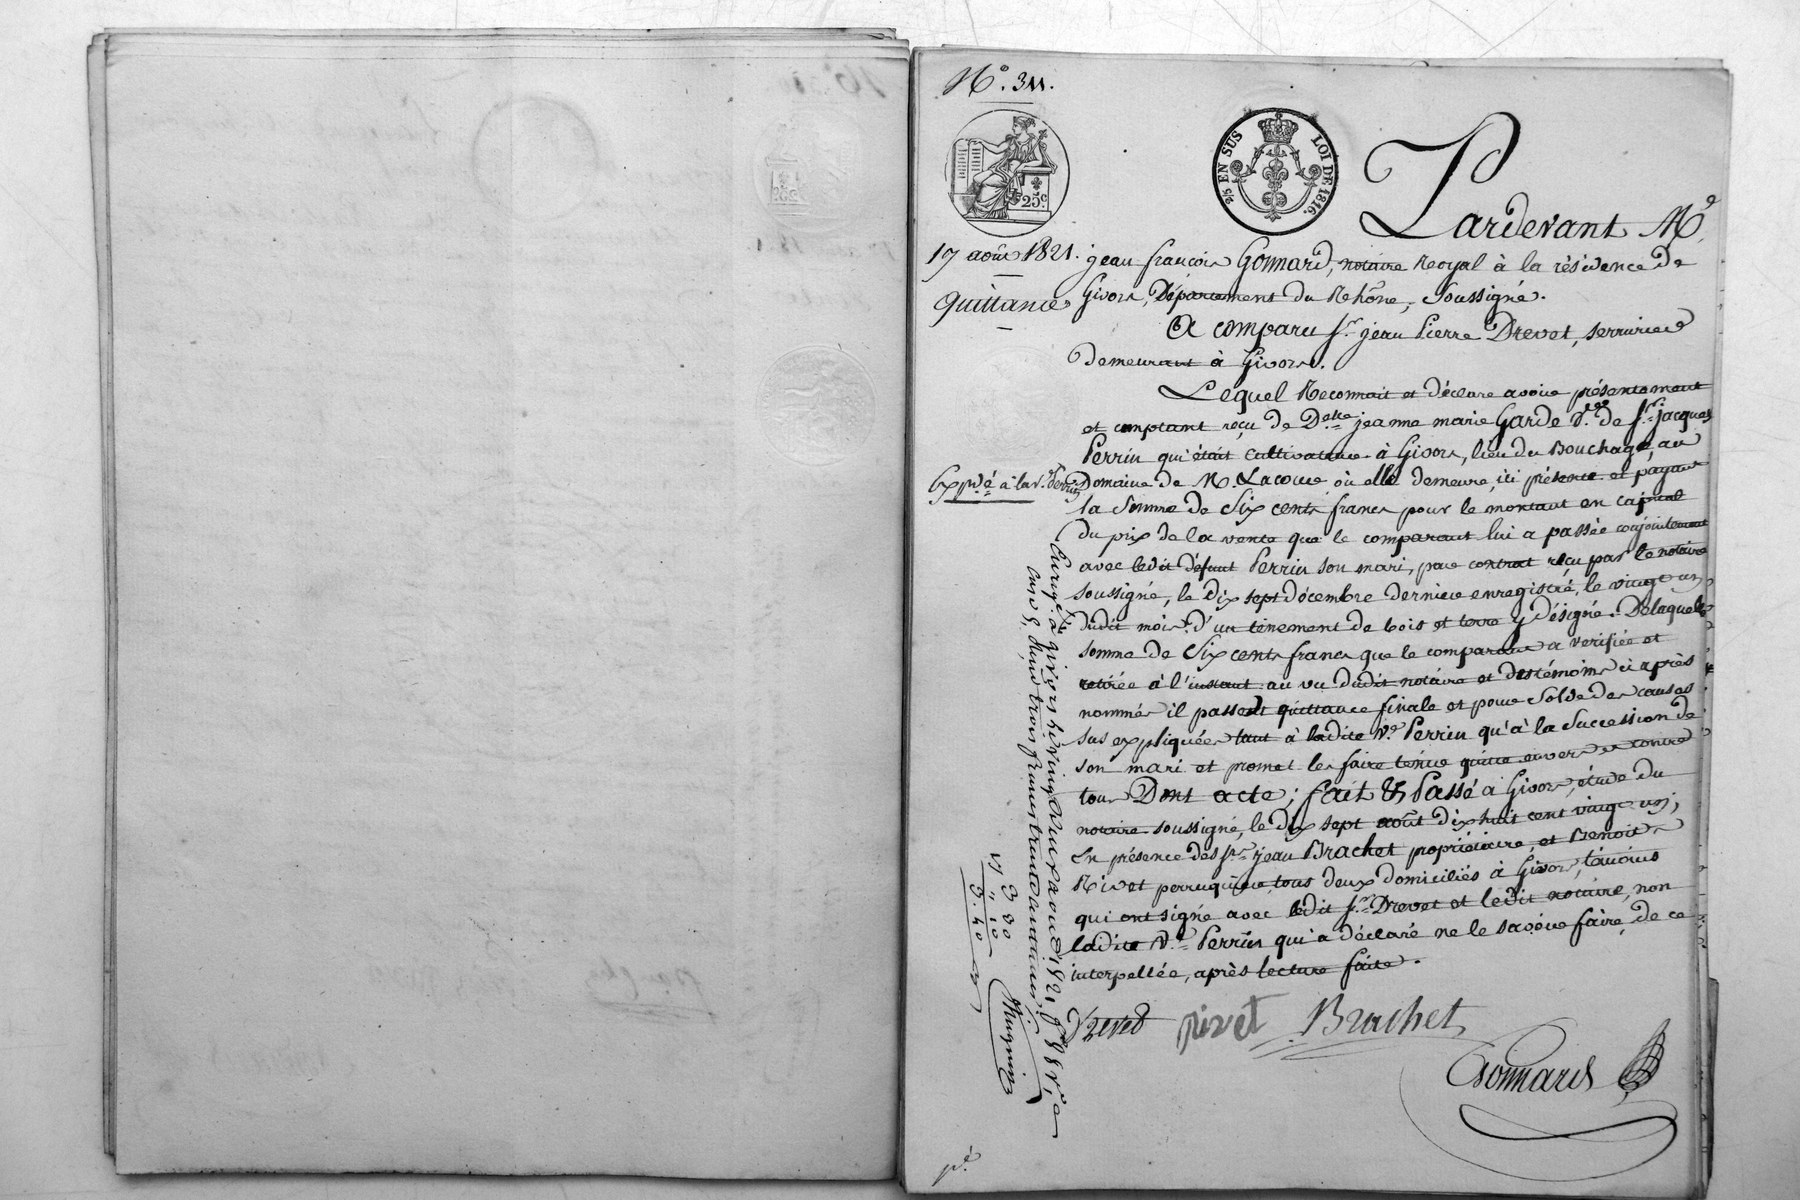 N.° 311.
25c
2/5 EN SUS LOI DE 1816.
Pardevant Me
17 août 1821.
Quittance
jean françois Gonnard, notaire Royal à la résidence de
Givors, Département du Rhône, Soussigné.
A comparu Sr. jean Pierre Drevet, serrurier
demeurant à Givors.
Lequel Reconnait et déclare avoir présentement
et comptant reçu de Delle jeanne marie Garde Ve. de Sr. jacques
Perrin qui était Cultivateur à Givors, lieu du Bouchage, au
Expdé. à la Ve. Perrin
Domaine de M. Lacour où elle demeure, ici présente et payant
la Somme de Six cents francs pour le montant en capital
du prix de la vente que le comparant lui a passée conjointement
avec ledit défunt Perrin son mari, par contrat reçu par le notaire
soussigné, le dix sept décembre dernier enregistré, le vingt un
dudit mois, d'un tènement de bois et terre y désigné. De laquelle
somme de Six cents francs que le comparant a verifiée et
retirée à l'instant au vu dudit notaire et des témoins ci après
nommés il passe quittance finale et pour Solde des causes
sus expliquées tant à ladite Ve. Perrin qu'à la Succession de
son mari et promet les faire tenir quitte envers et contre
tous Dont acte; fait & Passé à Givors, étude du
notaire soussigné, le dix sept août dix huit cent vingt un,
En présence des Srs. jean Brachet propriétaire, et Benoit
Rivet perruquier, tous deux domiciliés à Givors, témoins
qui ont signé avec ledit Sr. Drevet et ledit notaire, non
ladite Ve. Perrin qui a déclaré ne le savoir faire, de ce
interpellée, après lecture faite.
Enregé. à givors le vingt deux août 1821, fo. 88 Vo.
Case 5, Reçu trois francs trente centimes
3 30
3.40
Drevet rivet Brachet
Gonnard